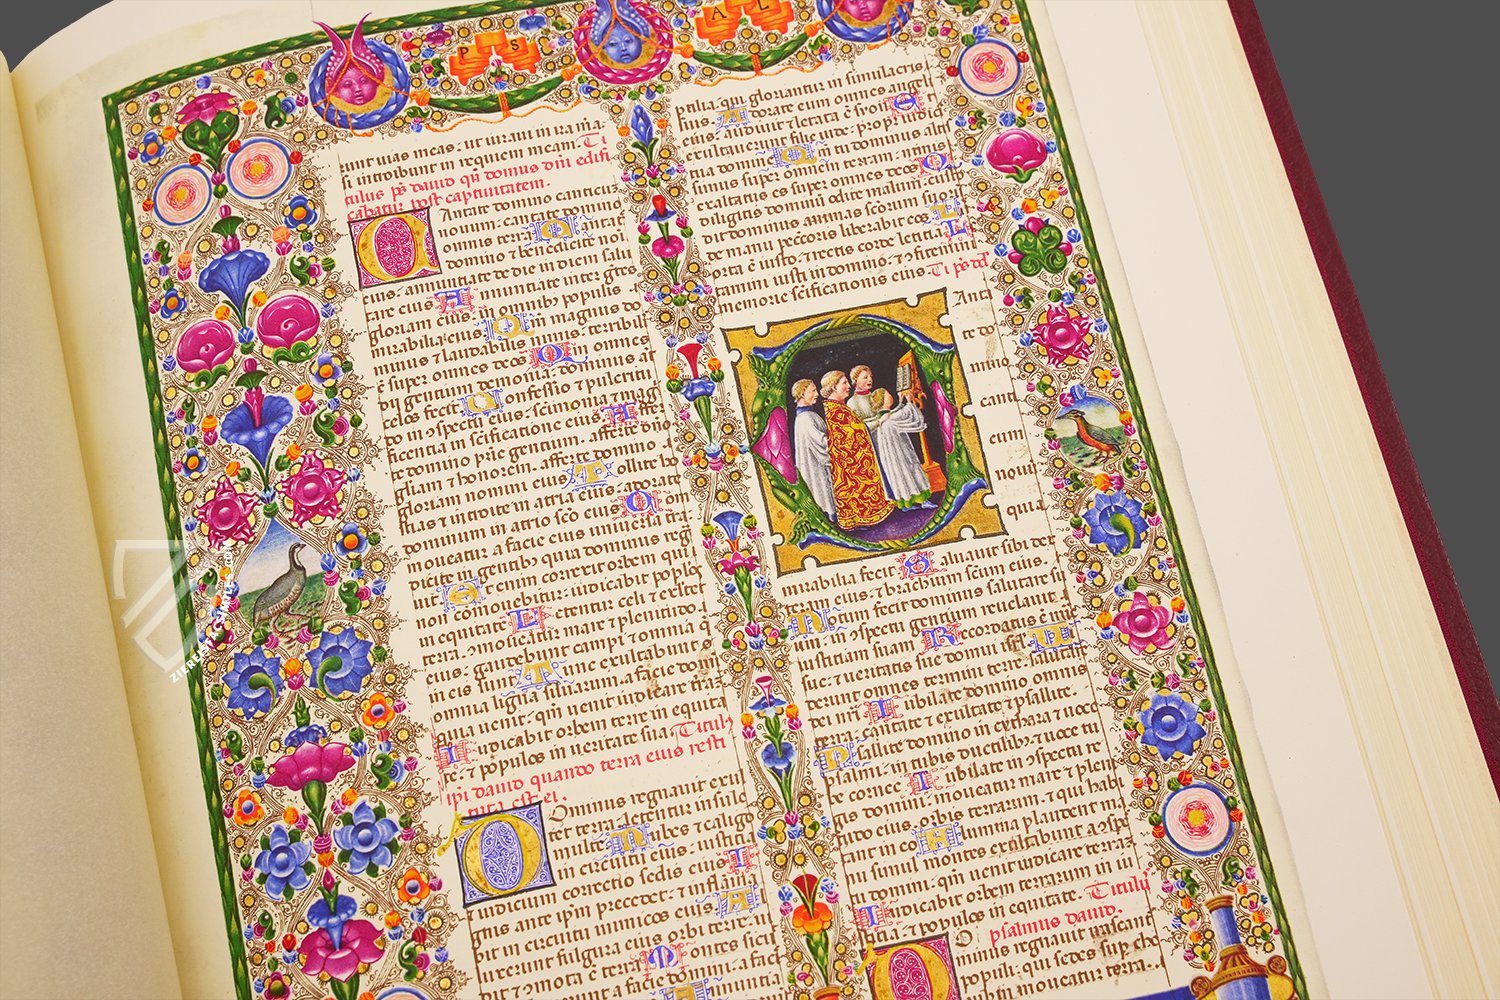 PS AL
unt uias meas. ut iuraui in ira mea
si introibunt in requiem meam. Ti
tulus ps dauid qn domus dni edifi
cabatur post captiuitatem.
CAntate domino canticuz
nouum. cantate domino
omnis terra. Cantate
domino et benedicite noi
eius. annuntiate de die in diem salu
tare eius. Annuntiate inter gentes
gloriam eius. in omnibus populis
mirabilia eius. Qm magnus do
minus et laudabilis nimis. terribil
est super omnes deos. Qm omnes
dij gentium demonia. dominus at
celos fecit. Confessio et pulcritu
do in conspectu eius. scimonia et mag
ficentia in scificatione eius. Afferte
domino patrie gentium. afferte dno
gliam et honorem. afferte domino
gloriam nomini eius. Tollite ho
stias et introite in atria eius. adorate
dominum in atrio sco eius. Com
moueatur a facie eius uniuersa tra.
dicite in gentibus quia dominus reg
nauit. Etenim correxit orbem qui
non commouebitur. iudicabit populos
in equitate. Letentur celi et exultet
terra. commoueatur mare et plenitudo
eius. gaudebunt campi et omnia que
in eis sunt. Tunc exultabunt
omnia ligna siluarum a facie domi
quia uenit. qm uenit iudicare tram
Iudicabit orbem terre in equita
te. et populos in ueritate sua. Titulus
ipsi dauid quando terra eius resti
tuta est ei.
DOminus regnauit exul
tet terra. letentur insule
multe. Nubes et caligo
in circuitu eius. iustitia et
iudicium correctio sedis eius. Ig
gnis ante ipm precedet. et inflama
bit in circuitu inimicos eius. Al
luxerunt fulgura eius orbi terre. ui
dit et comota e terra. Montes sicut
a facie domini. a faci
ptilia. qui gloriantur in simulacris
suis. Adorate eum omnes angeli
eius. audiuit et letata e syon. Et
exultauerunt filie iude. propter iudi
cia tua domine. Qm tu dominus alti
simus super omnem terram. nimis
exaltatus es super omnes deos. Qui
diligitis dominum odite malum. custo
dit dominus animas scorum suor
de manu peccoris liberabit eos. Lux
orta e iusto. et rectis corde letitia. Le
tamini iusti in domino. et confitemini
memorie scificationis eius. Ti ps dd
CAnta
te do
mino
canti
cum
nouu
quia
mirabilia fecit. Saluauit sibi dex
tera eius. et brachium scum eius.
Notum fecit dominus salutare suum
in conspectu gentium reuelauit
iustitiam suam. Recordatus e mie
sue. et ueritatis sue domui isrl. Vi
derunt omnes termini terre. salutare
dei nri. Iubilate domino omnis
terra. cantate et exultate et psallite.
Psallite domino in cythara et uoce
psalmi. in tubis ductilibus. et uoce tu
be cornee. Iubilate in conspectu re
gis domini. moueatur mare et pleni
tudo eius. orbis terrarum. et qui habi
tant in eo. Flumina plaudent ma
nu simul montes exultabunt a conspe
ctu domini. qm uenit iudicare terraz
Iudicabit orbem terrarum in iu
stitia. et populos in equitate. Titulus
psalmus dauid.
DOminus regnauit irascant
populi. qui sedes sup che
rubin moueatur terra.